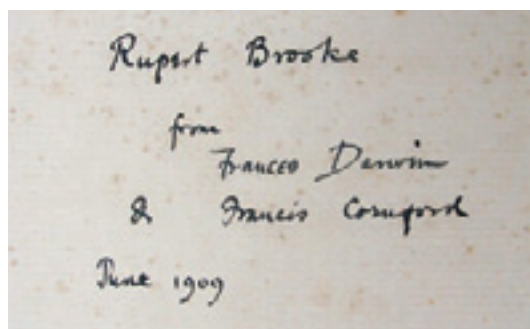 Rupert Brooke
from
Frances Darwin
& Francis Cornford
June 1909